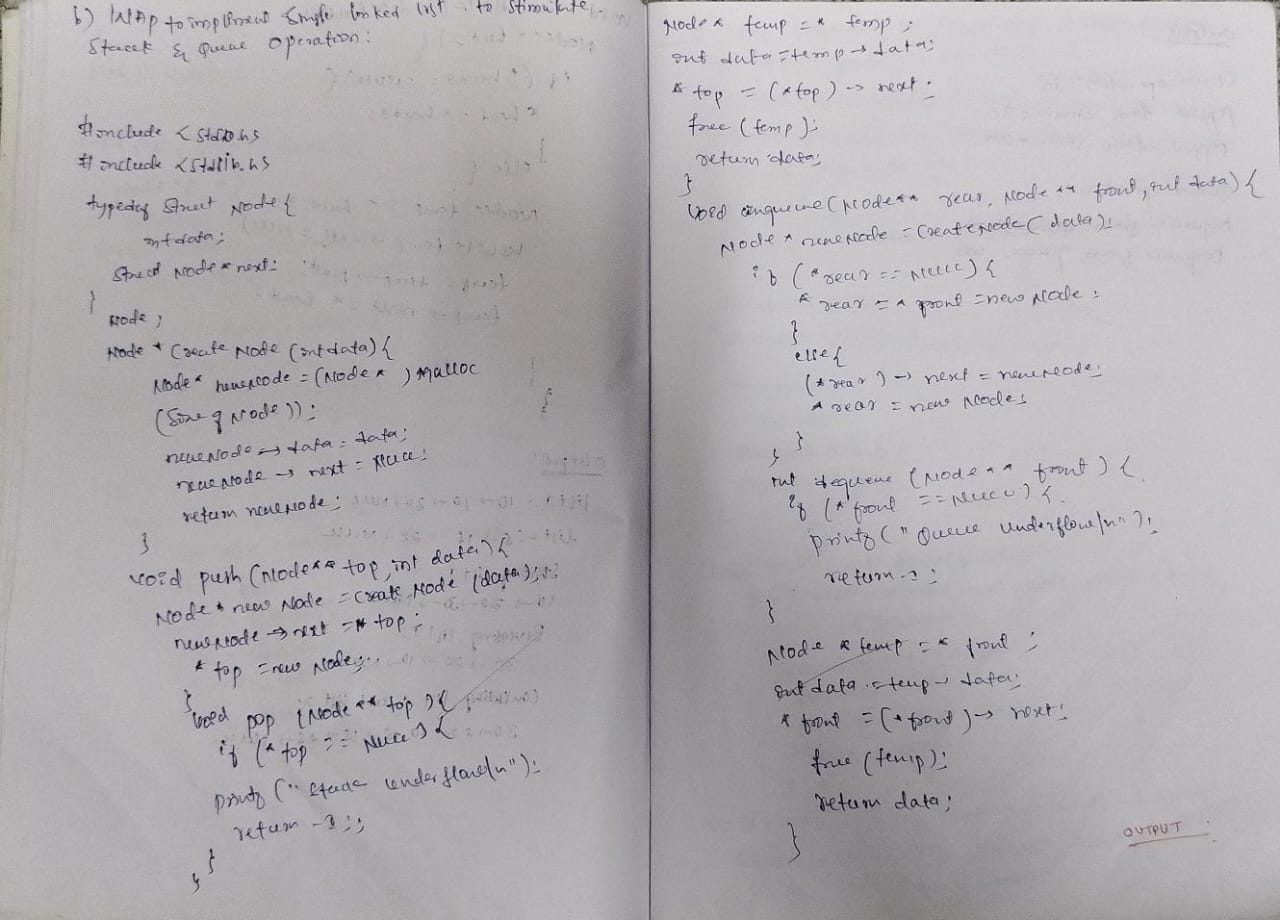 b) WAP to implement Single linked list to Stimulate
Stack & Queue operation:
#include <stdio.h>
#include <stdlib.h>
typedef struct Node {
int data;
Struct Node * next;
}
Node;
Node * Create Node (int data) {
Node* newnode = (Node* ) malloc
(Size of Node));
newNode → data = data;
newNode → next = NULL;
return newNode;
}
void push (Node** top, int data) {
Node * new Node = Create Node (data);
newNode → next = * top;
* top = new Node;
}
void pop (Node ** top) {
if (* top == NULL) {
printf (" Stack underflow\n");
return -1;
}
}
Node * temp = * temp ;
int data = temp → data;
* top = (*top) → next;
free (temp);
return data;
}
void enqueue (Node** rear, Node ** front, int data) {
Node * newNode = CreateNode ( data);
if (*rear == NULL) {
* rear = * front = new Node;
}
else {
(*rear) → next = newNode;
* rear = new Node;
}
}
int dequeue (Node ** front) {
if (* front == NULL) {
printf (" Queue underflow\n");
return -1;
}
Node * temp = * front ;
int data = temp → data;
* front = (*front) → next;
free (temp);
return data;
}
OUTPUT :